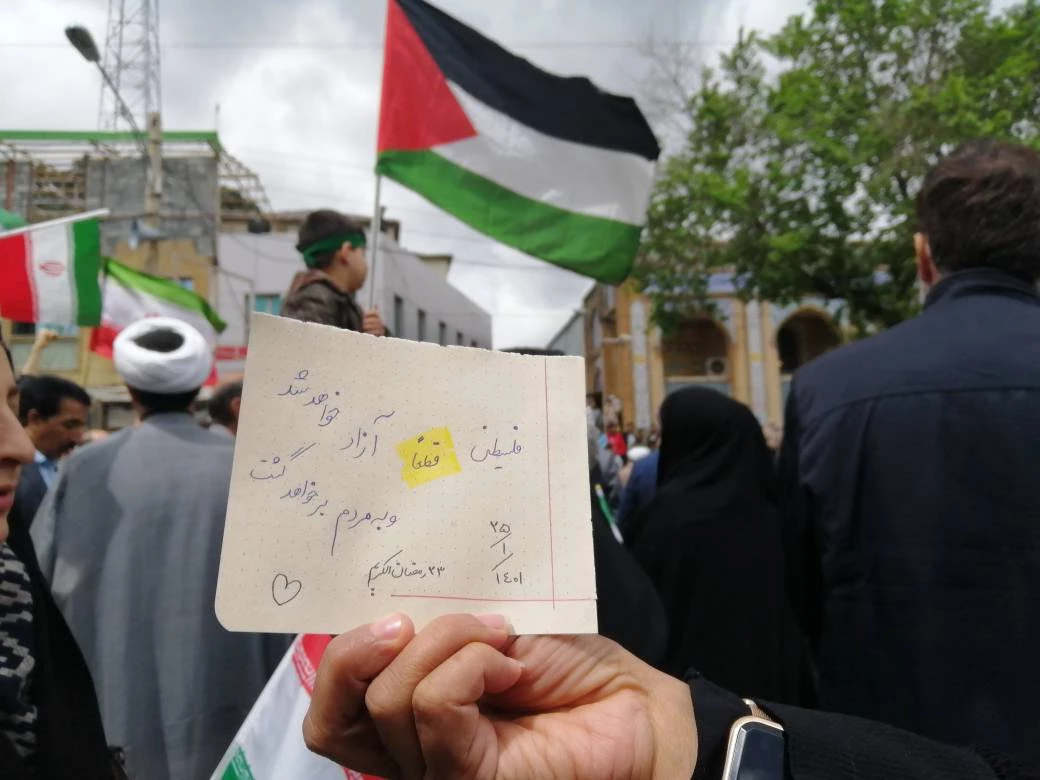 فلسطین قطعاً آزاد خواهد شد
و به مردم برخواهد گشت
۲۵
۱
۱۴۰۱
۲۳ رمضان الکریم